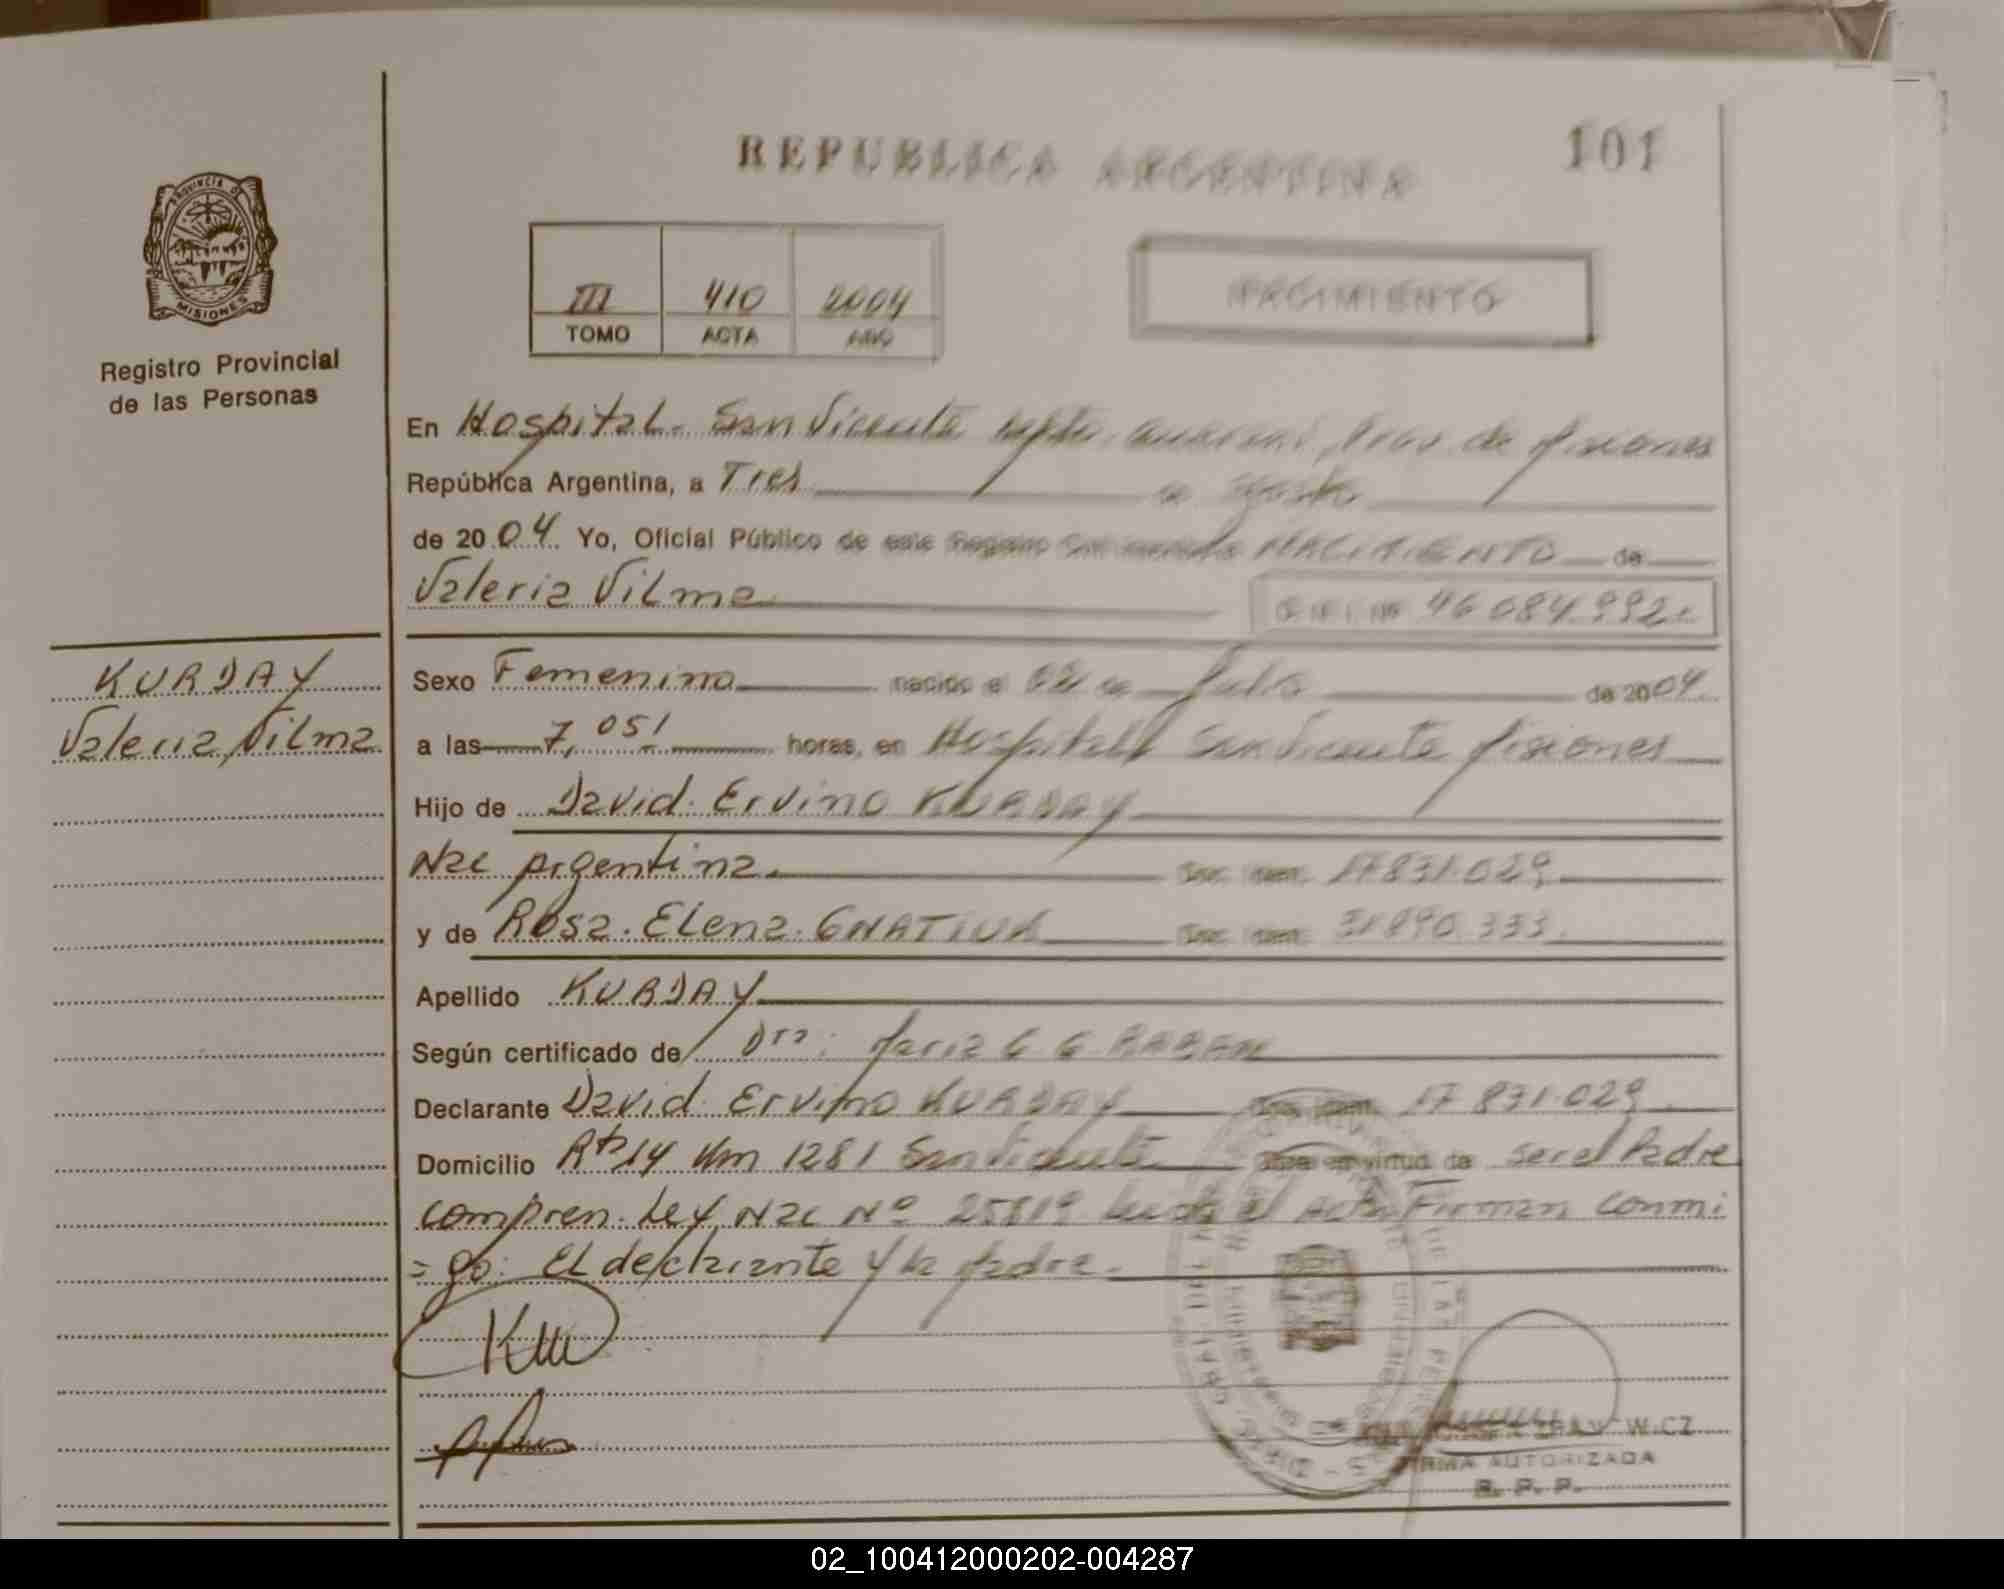 REPUBLICA ARGENTINA
101
PROVINCIA DE
MISIONES
Registro Provincial
de las Personas
III 410 2004
TOMO ACTA AÑO
NACIMIENTO
En Hospital. San Vicente Dpto. Guarani, Prov. de Misiones
República Argentina, a Tres de Agosto
de 2004. Yo, Oficial Público de este Registro Civil NACIMIENTO de
Valeria Vilma
D.N.I. Nº 46.084.992
KURDAY
Valeria Vilma
Sexo Femenino nacido el 02 de Julio de 2004
a las 7,05' horas, en Hospital San Vicente Misiones
Hijo de David. Ervino KURDAY
Nac Argentina. Doc. Ident. 17.831.029
y de Rosa. Elena. GNATIUK Doc. Ident. 31.890.333
Apellido KURDAY
Según certificado de Dra: Maria G G
Declarante David. Ervino KURDAY Doc. Ident. 17.831.029
Domicilio Rta 14 Km 1281 San Vicente Obra en virtud de ser el Padre
compren. Ley. Nac Nº 25819 Leida el Acta Firman conmi
=go: El declarante y la Madre.
FIRMA AUTORIZADA
R. P. P.
02_100412000202-004287